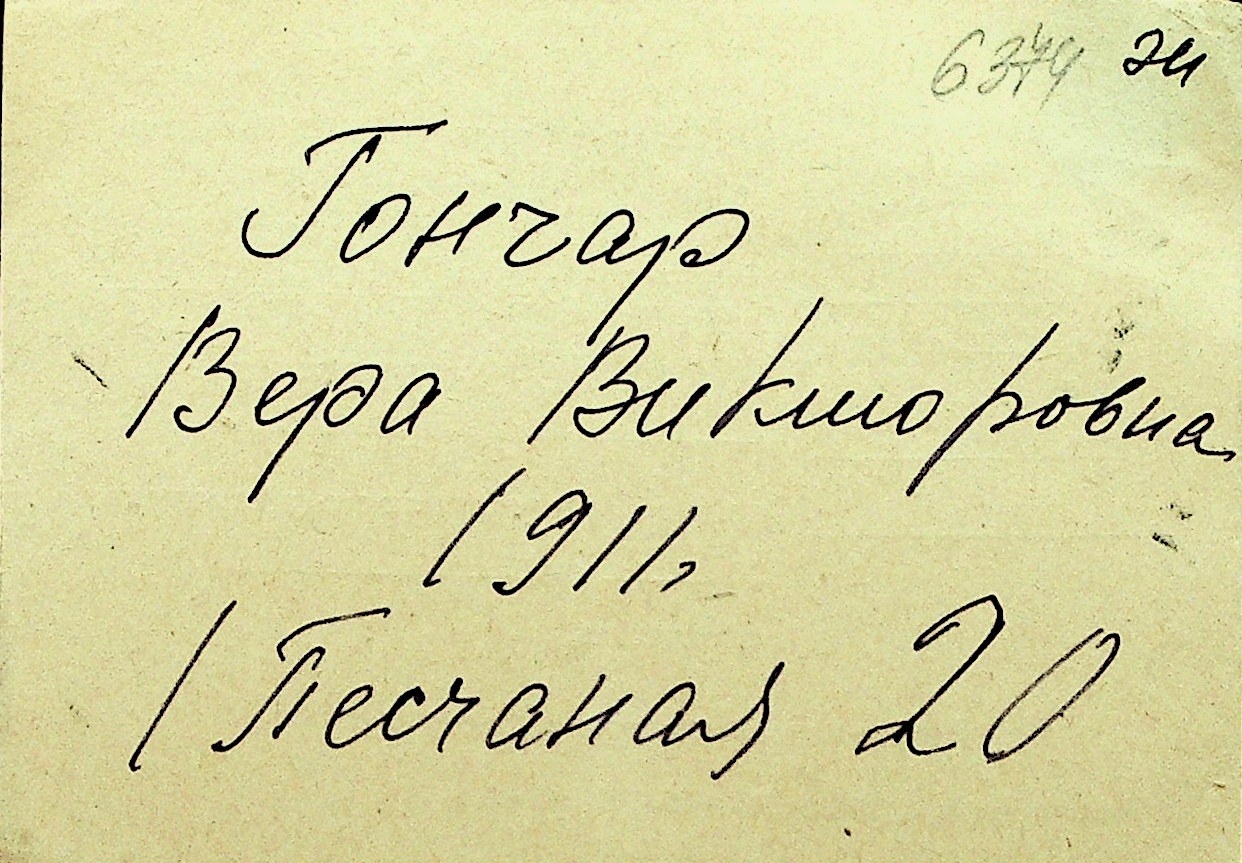 6374 эи
Гончар
Вера Викторовна
1911,
1 Песчаная 20